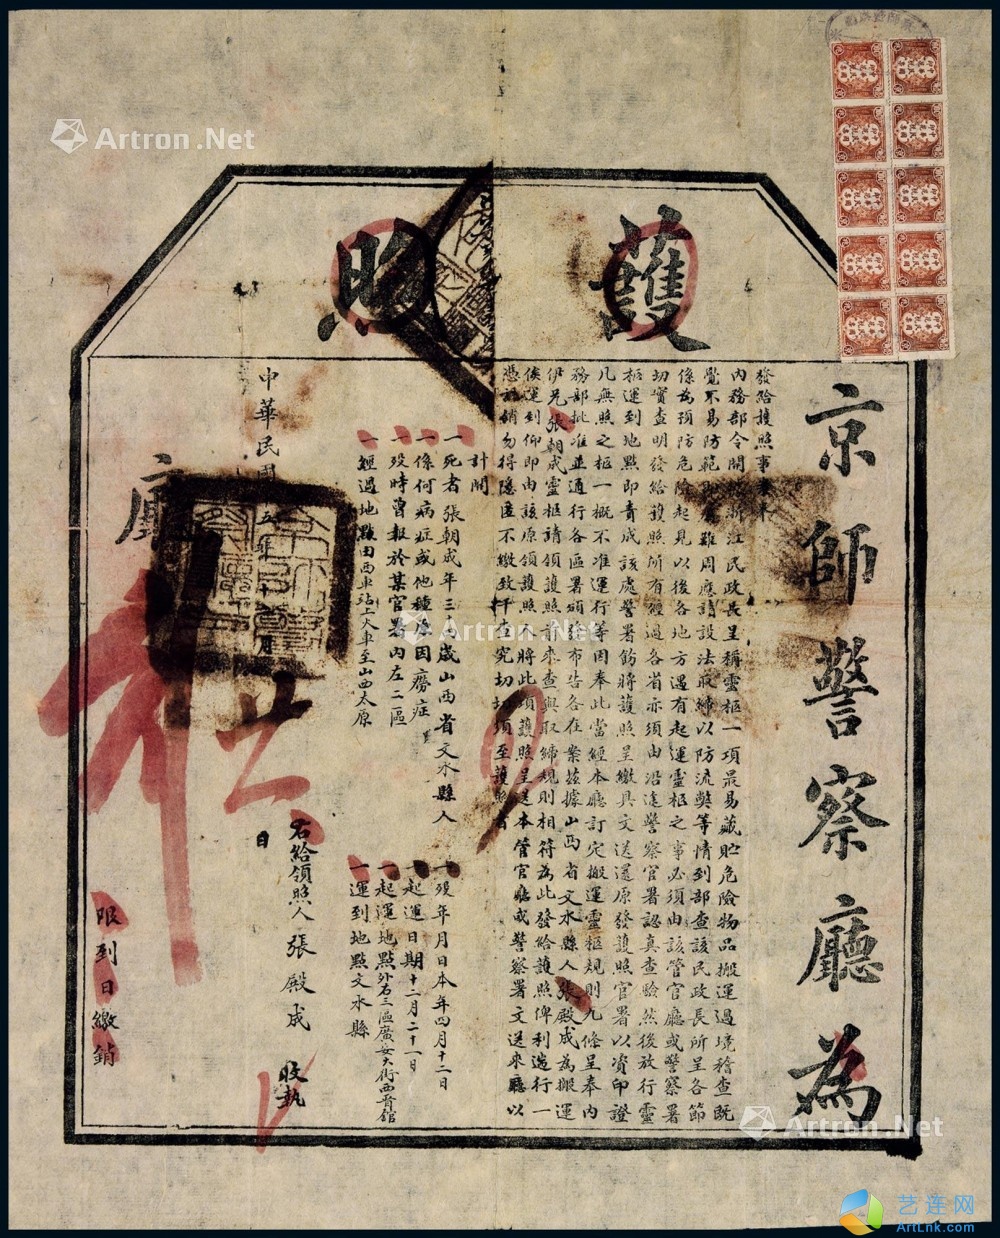 護照
京師警察廳為
發給護照事案奉
內務部令開據浙江民政長呈稱靈柩一項最易藏貯危險物品搬運過境稽查既
覺不易防範即屬難周應請設法取締以防流獘等情到部查該民政長所呈各節
係為預防危險起見以後各地方遇有起運靈柩之事必須由該管官廳或警察署
切實查明發給護照所有經過各省亦須由沿途警察官署認真查驗然後放行靈
柩運到地點即責成該處警署飭將護照呈繳具文送還原發護照官署以資印證
凡無照之柩一概不准運行等因奉此當經本廳訂定搬運靈柩規則九條呈奉內
務部批准並通行各區署頒發布告各在案茲據山西省文水縣人張殿成為搬運
伊兄張朝成靈柩請領護照前來查與取締規則相符為此發給護照俾利遄行一
俟運到仰即由該原領護照人將此項護照呈送本管官廳或警察署文送來廳以
憑註銷勿得隱匿不繳致干查究切切須至護照者
計開
一死者張朝成年三十歲山西省文水縣人
一係何病症或他種原因癆症
一歿時曾報於某官署內左二區
一經過地點由西車站上火車至山西太原
一歿年月日本年四月十二日
一起運日期十二月二十一日
一起運地點外右三區廣安大街西晉館
一運到地點文水縣
右給領照人張殿成 收執
中華民國五年十二月 日
廳
限到日繳銷
Artron.Net
Artron.Net
Artron.Net
艺连网
ArtLnk.com